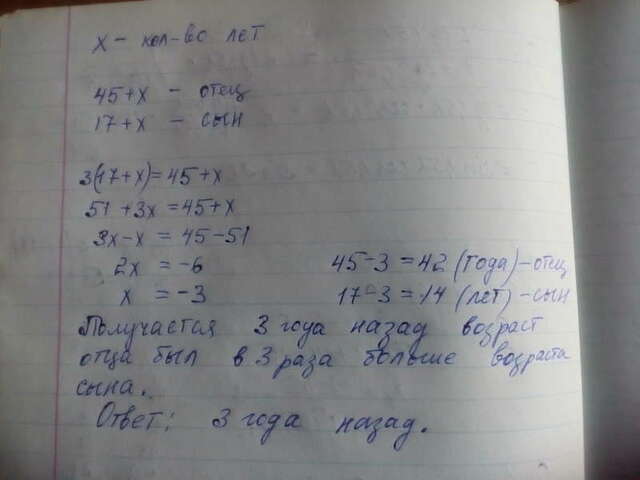 x - кол-во лет
45+x - отец
17+x - сын
3(17+x)=45+x
51+3x=45+x
3x-x=45-51
2x=-6
x=-3
45-3=42 (года)-отец
17-3=14 (лет)-сын
Получается 3 года назад возраст
отца был в 3 раза больше возраста
сына.
Ответ: 3 года назад.